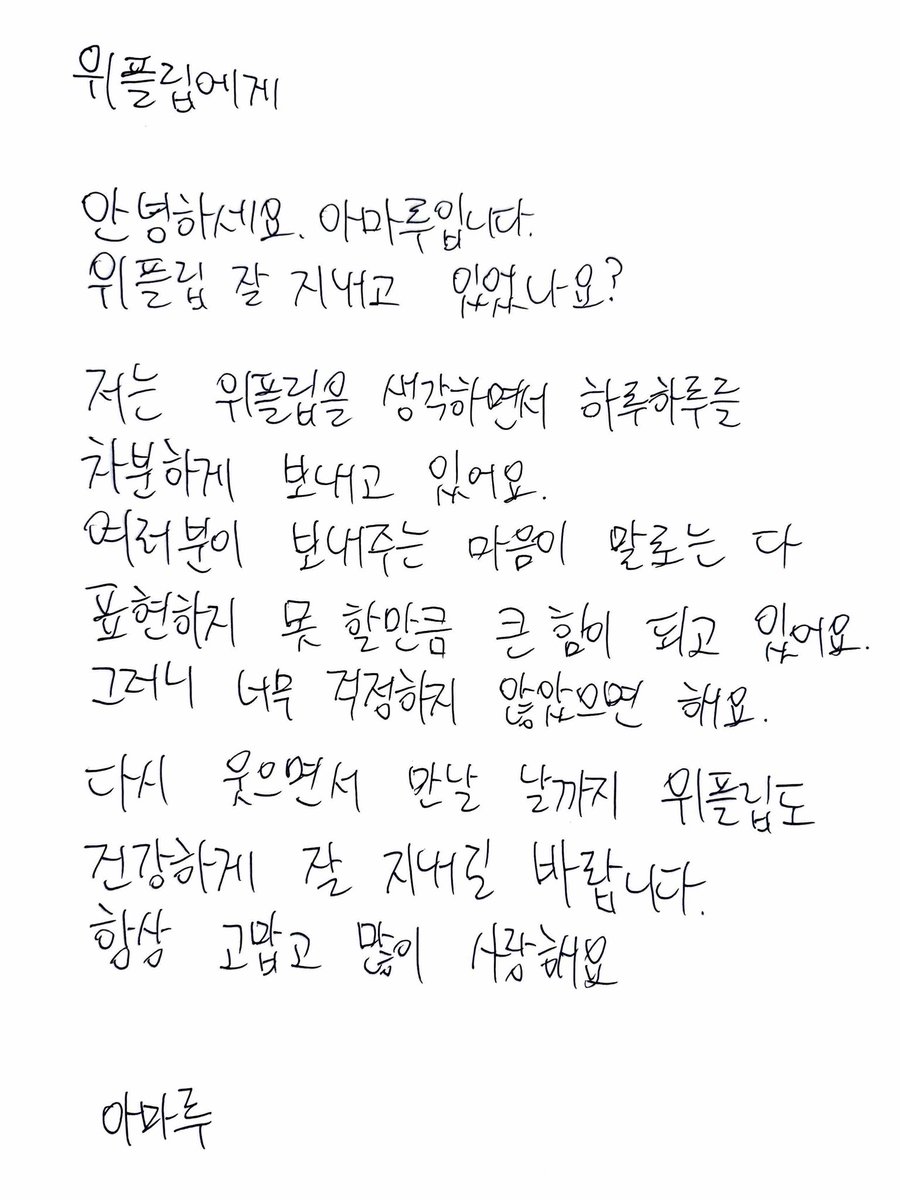 위플립에게
안녕하세요. 아마루입니다.
위플립 잘 지내고 있었나요?
저는 위플립을 생각하면서 하루하루를
차분하게 보내고 있어요.
여러분이 보내주는 마음이 말로는 다
표현하지 못 할만큼 큰 힘이 되고 있어요.
그러니 너무 걱정하지 않았으면 해요.
다시 웃으면서 만날 날까지 위플립도
건강하게 잘 지내길 바랍니다.
항상 고맙고 많이 사랑해요
아마루